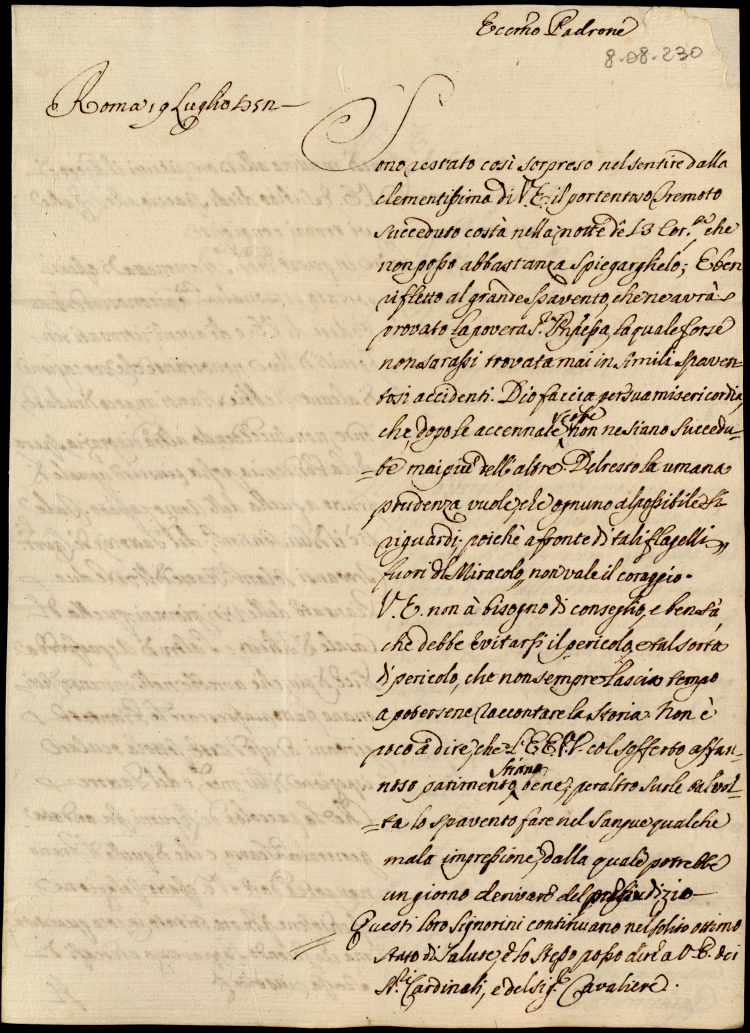 Eccmo Padrone
8-08-230
Roma 19 Luglio 1751
Sono restato così sorpreso nel sentire dalla
clementissima di V.E. il portentoso Tremoto
succeduto costà nella notte de 13 Cor.te che
non posso abbastanza spiegarghelo; E ben
rifletto al grande spavento, che ne avrà
provato la povera S.ra Pnp̃essa, la quale forse
non sarassi trovata mai in simili spaven-
tosi accidenti. Dio faccia per sua misericordia,
che dopo le accennate scosse non ne siano succedu-
te mai più dell'altre. Del resto la umana
prudenza vuole, che ognuno al possibile si
riguardi; poichè a fronte di tali flagelli
fuori di Miracolo, non vale il coraggio.
V.E. non à bisogno di conseglio, e ben sà
che debbe evitarsi il pericolo, e tal sorta
di pericolo, che non sempre lascia tempo
a potersene raccontare la storia. Non è
poco à dire, che l'EE.VV. col sofferto affan-
noso patimento stiano bene; per altro suole talvol-
ta lo spavento fare nel sangue qualche
mala impressione, dalla quale potrebbe
un giorno derivare del pregiudizio
Questi loro Signorini continuano nel solito ottimo
stato di salute, e lo stesso posso dire a V.E. dei
SS.ri Cardinali, e del sig.r Cavaliere.